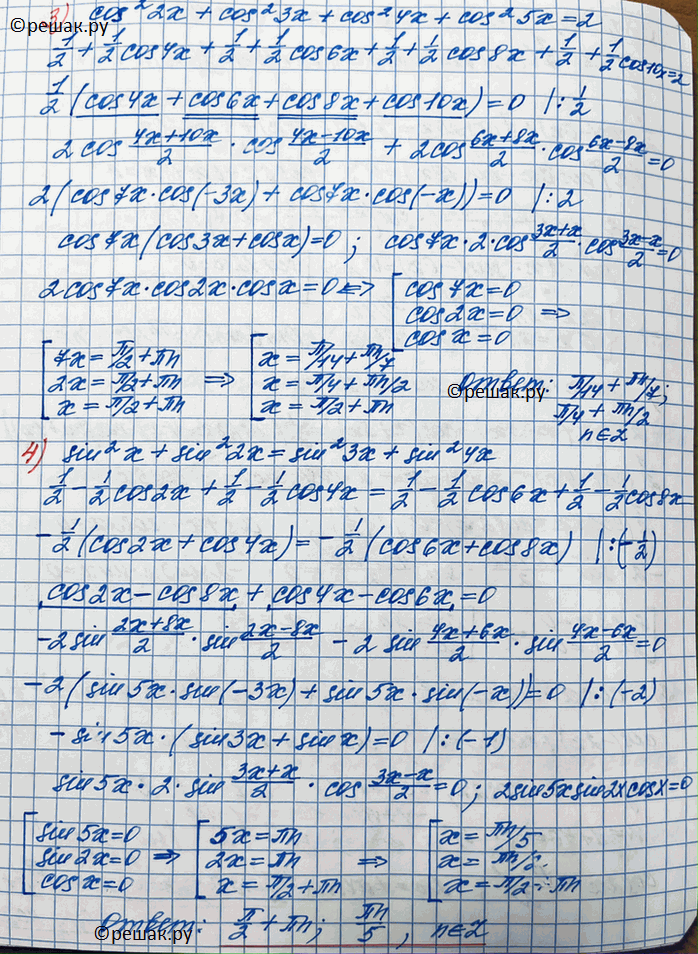 ©решак.ру
3) cos²2x + cos²3x + cos²4x + cos²5x = 2
1/2 + 1/2 cos4x + 1/2 + 1/2 cos6x + 1/2 + 1/2 cos8x + 1/2 + 1/2 cos10x = 2
1/2 (cos4x + cos6x + cos8x + cos10x) = 0 |: 1/2
2cos (4x+10x)/2 · cos (4x-10x)/2 + 2cos (6x+8x)/2 · cos (6x-8x)/2 = 0
2(cos7x·cos(-3x) + cos7x·cos(-x)) = 0 |: 2
cos7x(cos3x + cosx) = 0; cos7x·2·cos (3x+x)/2 · cos (3x-x)/2 = 0
2cos7x·cos2x·cosx = 0 <=> [ cos7x = 0
cos2x = 0 =>
cosx = 0
[ 7x = π/2 + πn => [ x = π/14 + πn/7
2x = π/2 + πn x = π/4 + πn/2
x = π/2 + πn x = π/2 + πn
Ответ: π/14 + πn/7;
π/4 + πn/2
n∈Z
©решак.ру
4) sin²x + sin²2x = sin²3x + sin²4x
1/2 - 1/2 cos2x + 1/2 - 1/2 cos4x = 1/2 - 1/2 cos6x + 1/2 - 1/2 cos8x
-1/2 (cos2x + cos4x) = -1/2 (cos6x + cos8x) |: (-1/2)
cos2x - cos8x + cos4x - cos6x = 0
-2sin (2x+8x)/2 · sin (2x-8x)/2 - 2 sin (4x+6x)/2 · sin (4x-6x)/2 = 0
-2(sin5x·sin(-3x) + sin5x·sin(-x)) = 0 |: (-2)
-sin5x·(sin3x + sinx) = 0 |: (-1)
sin5x·2·sin (3x+x)/2 · cos (3x-x)/2 = 0; 2sin5xsin2xcosx = 0
[ sin5x = 0 [ 5x = πn [ x = πn/5
sin2x = 0 => 2x = πn => x = πn/2
cosx = 0 x = π/2 + πn x = π/2 + πn
Ответ: π/2 + πn; πn/5, n∈Z
©решак.ру